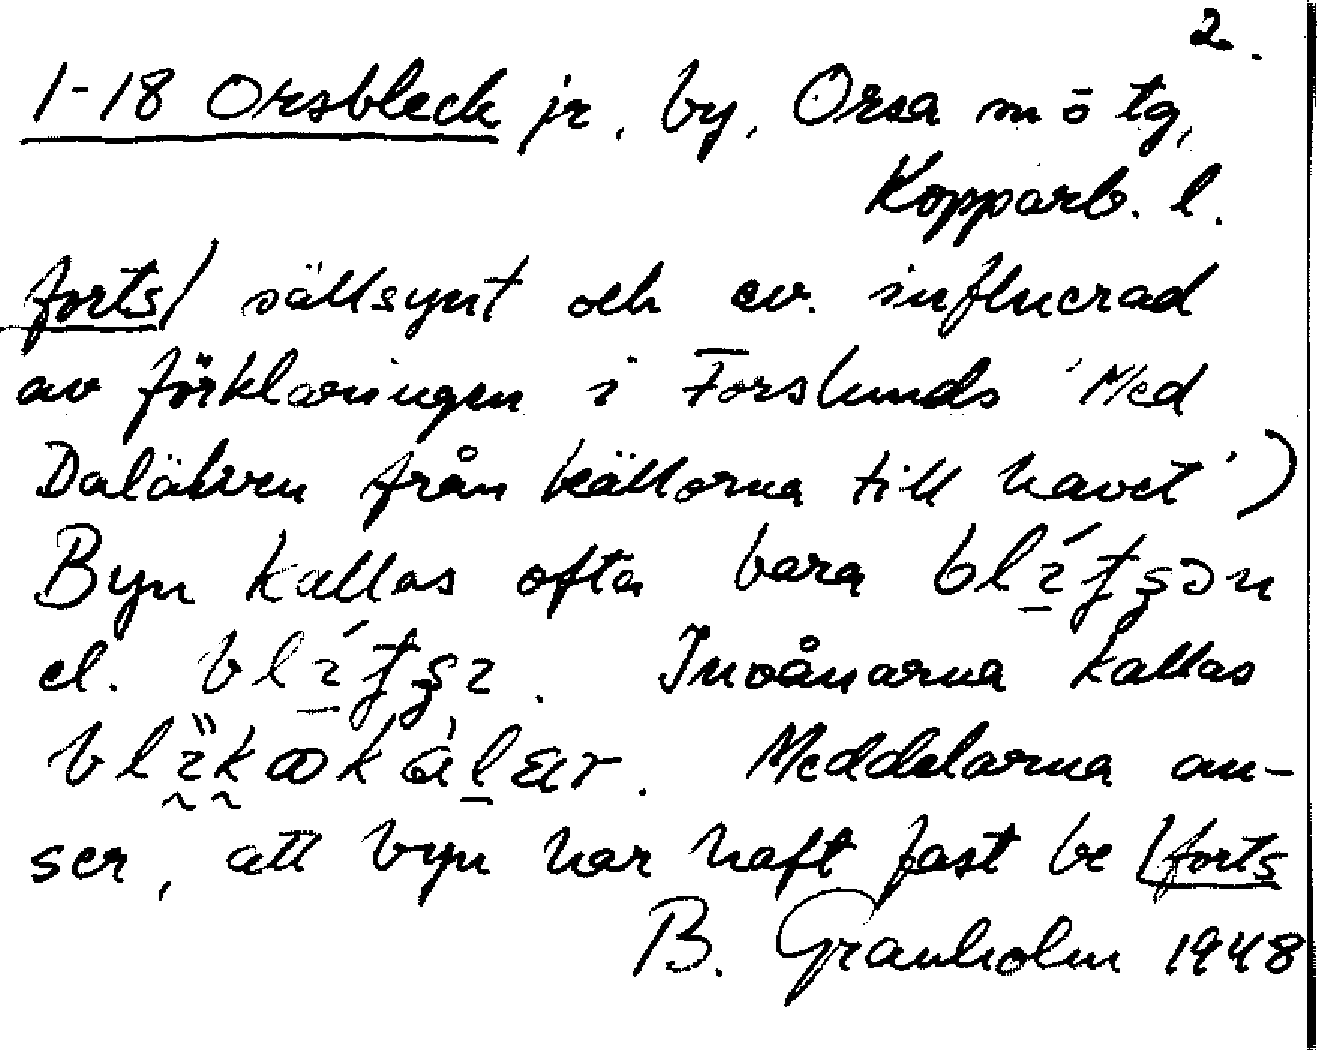 2.
1-18 Orsbleck jr, by, Orsa m o tg,
Kopparb. l.
forts/ sällsynt och ev. influerad
av förklaringen i Forslunds 'Med
Dalälven från källorna till havet')
Byn kallas ofta bara
el. Invånarna kallas
Meddelarna an-
ser, att byn har haft fast be /forts
B. Granholm 1948